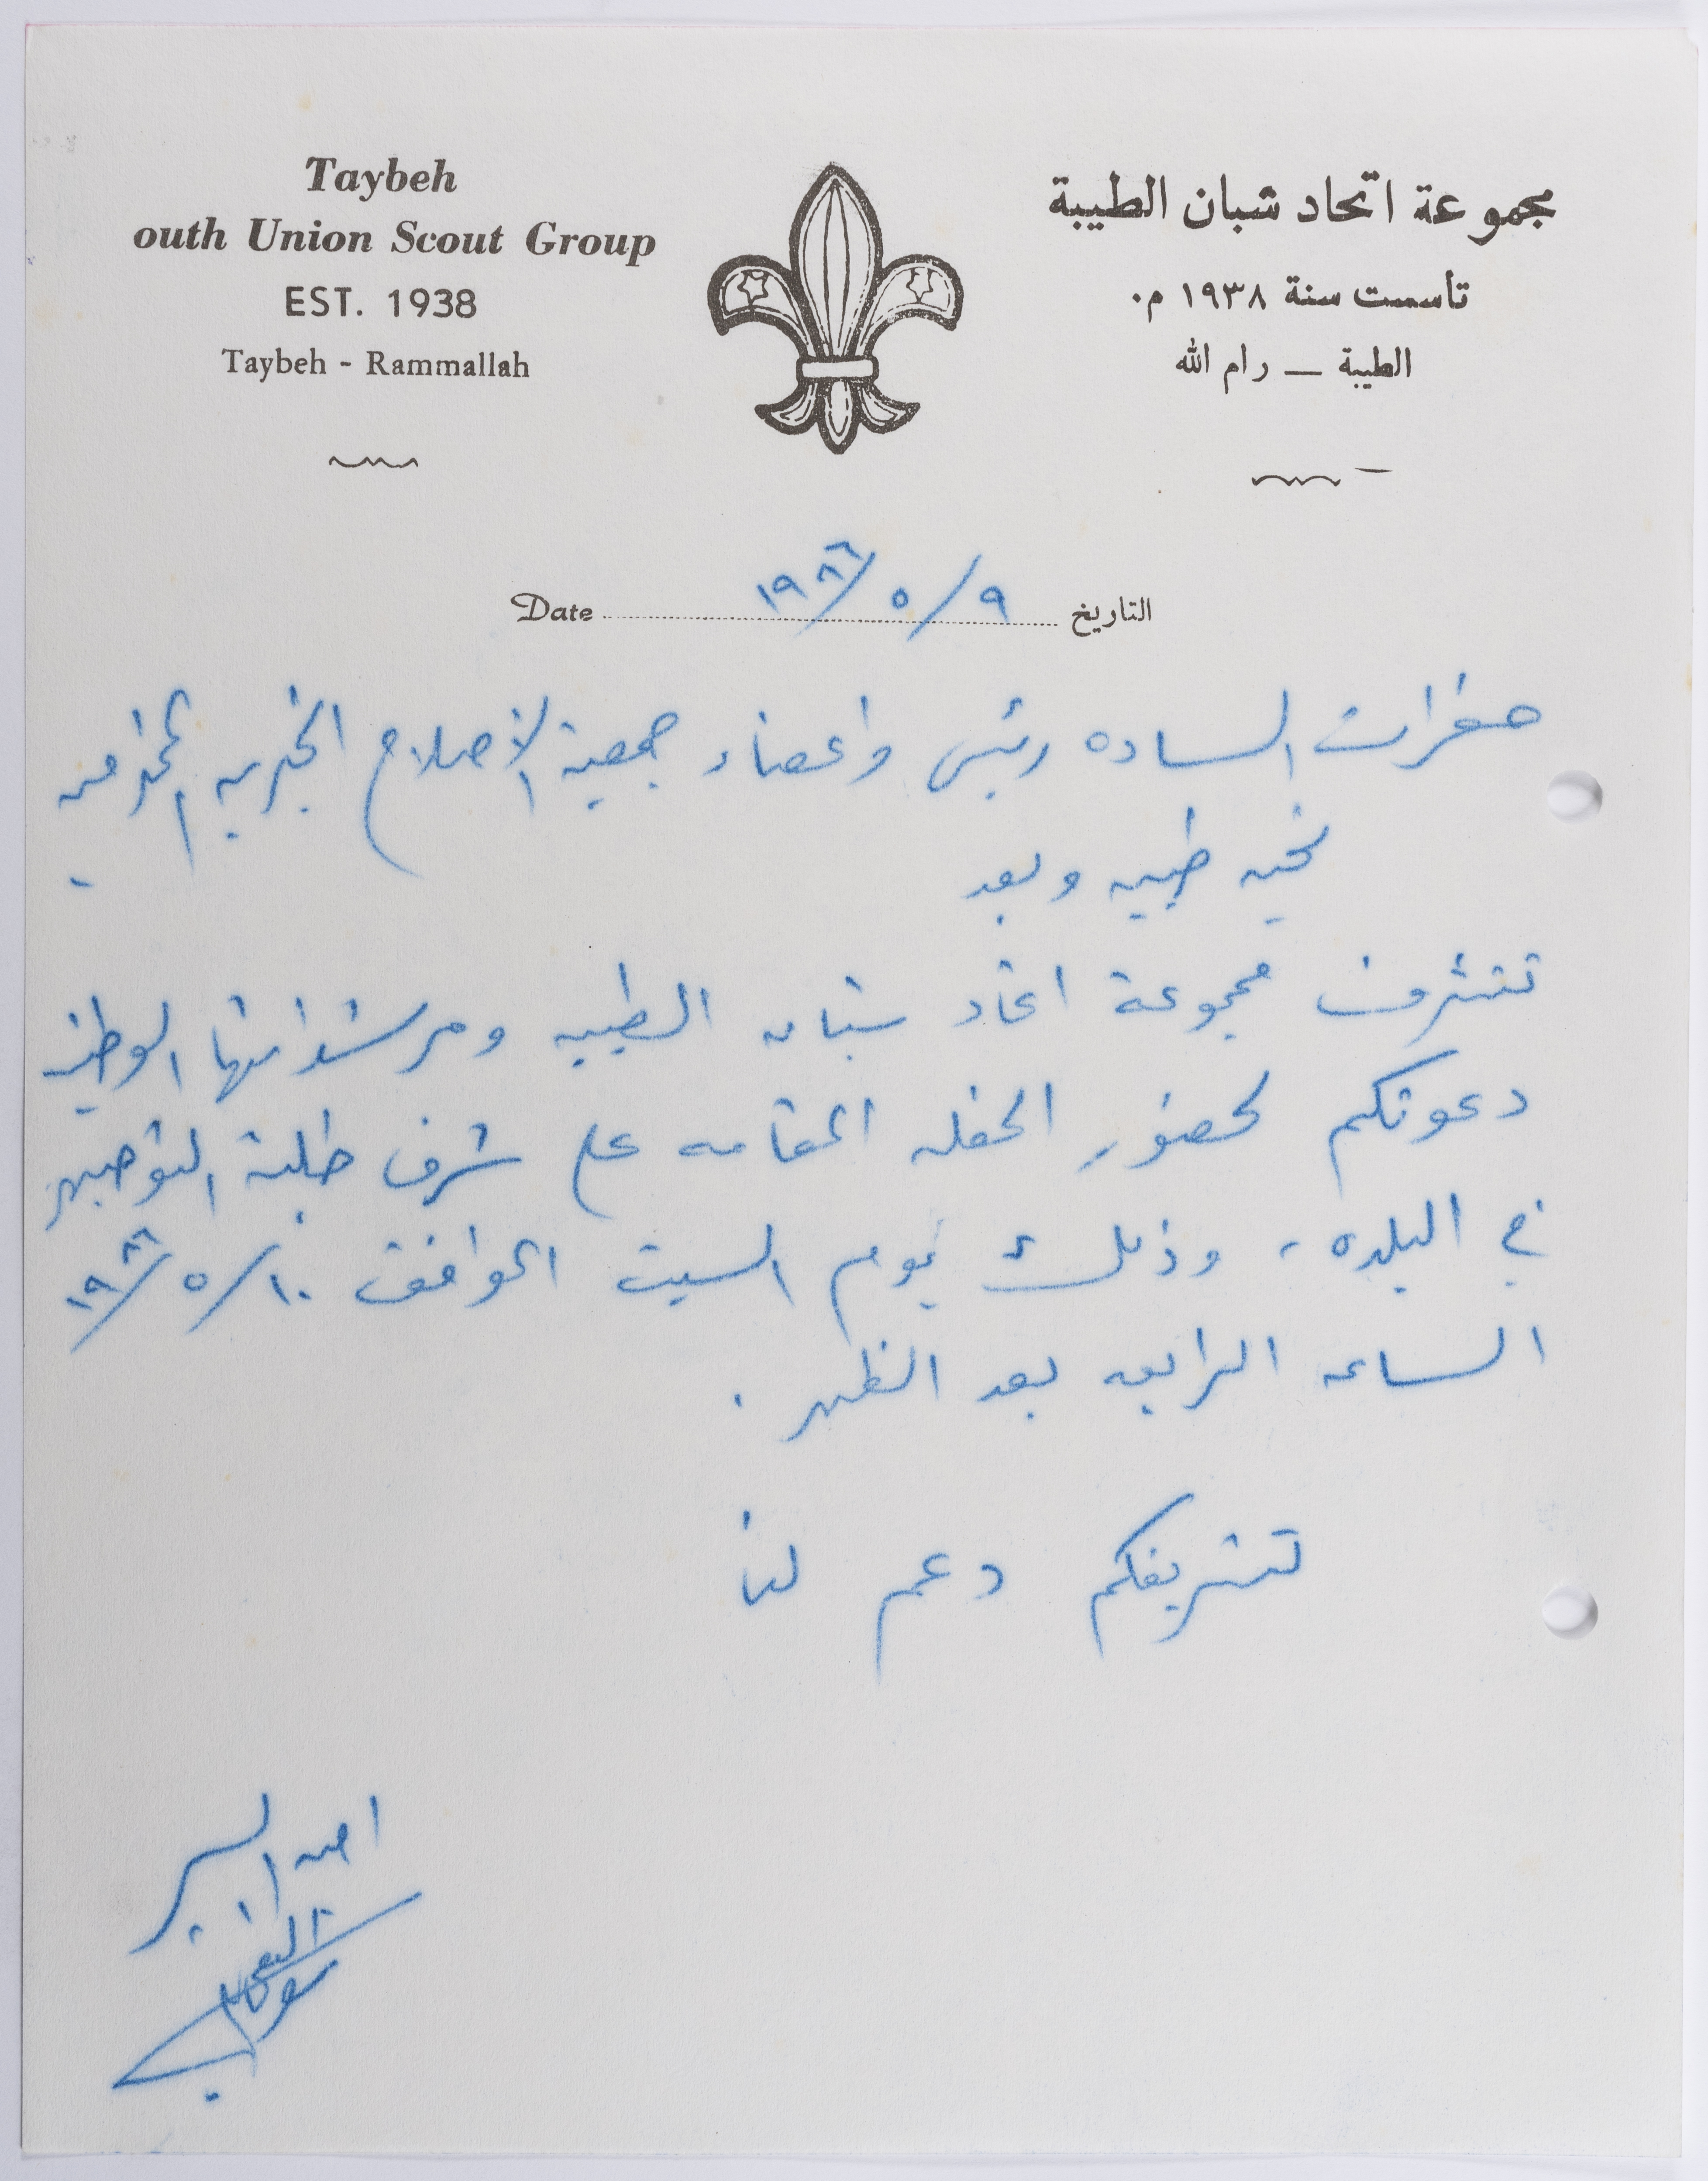 Taybeh
outh Union Scout Group
EST. 1938
Taybeh - Rammallah
مجموعة اتحاد شبان الطيبة
تأسست سنة ١٩٣٨ م٠
الطيبة — رام الله
Date ٩/٥/١٩٨٦ التاريخ
حضرات الساده رئيس واعضاء جمعية الاصلاح الخيريه المحترمين
تحيه طيبه وبعد
تتشرف مجموعة اتحاد شبان الطيبه ومرشداتها الوطنيه
دعوتكم لحضور الحفله المقامه على شرف طلبة التوجيهي
في البلده، وذلك يوم السبت الموافق ١٠/٥/١٩٨٦
الساعه الرابعه بعد الظهر.
تشريفكم دعم لنا
امين السر